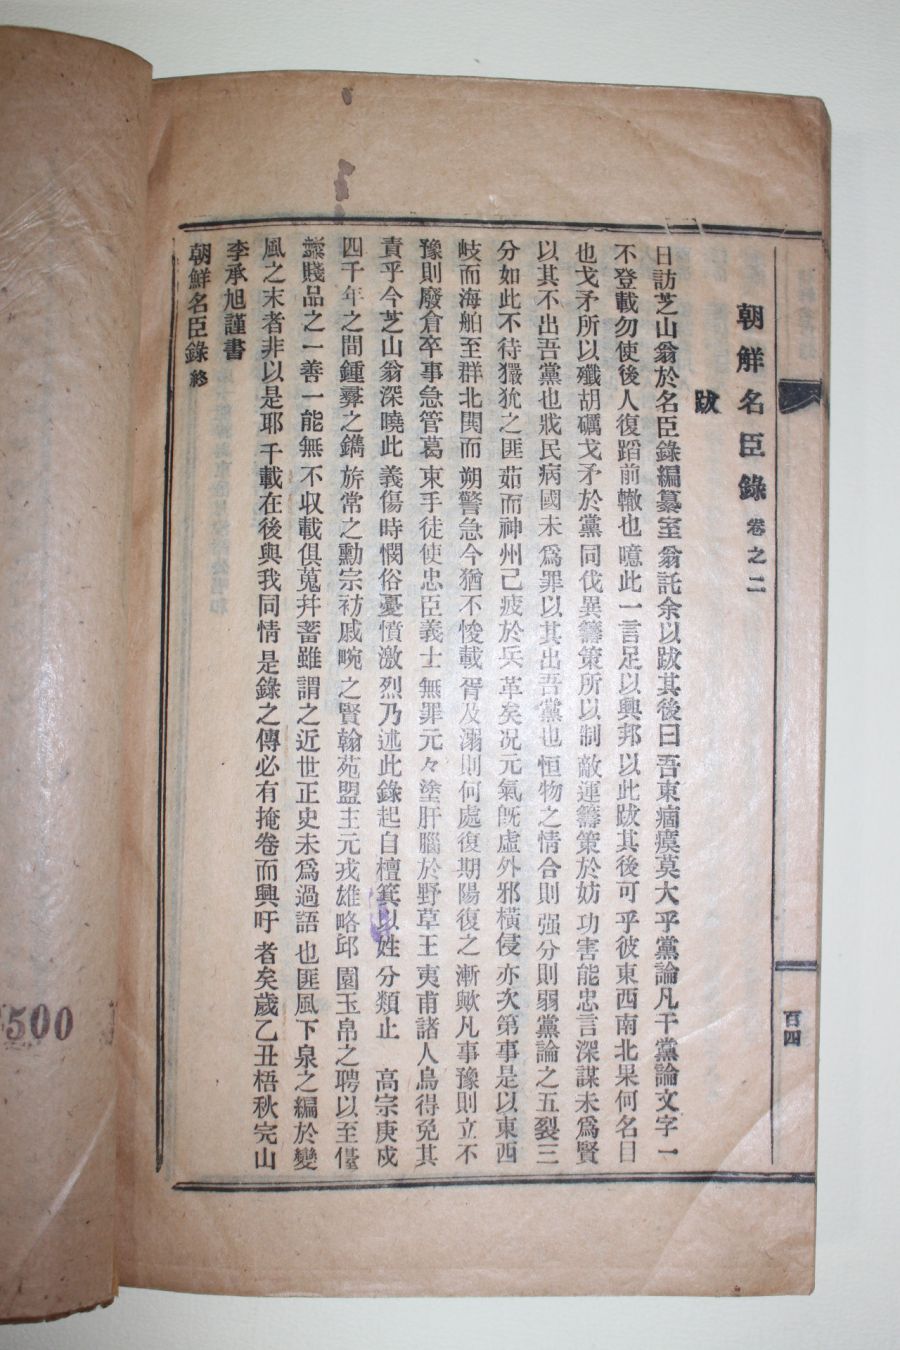 朝鮮名臣錄 卷之二
跋
日訪芝山翁於名臣錄編纂室翁託余以跋其後曰吾東痼瘼莫大乎黨論凡干黨論文字一
不登載勿使後人復蹈前轍也噫此一言足以興邦以此跋其後可乎彼東西南北果何名目
也戈矛所以殲胡礪戈矛於黨同伐異籌策所以制敵運籌策於妨功害能忠言深謀未爲賢
以其不出吾黨也戕民病國未爲罪以其出吾黨也恒物之情合則强分則弱黨論之五裂三
分如此不待玁狁之匪茹而神州己疲於兵革矣况元氣旣虛外邪橫侵亦次第事是以東西
岐而海舶至群北閧而朔警急今猶不悛載胥及溺則何處復期陽復之漸歟凡事豫則立不
豫則廢倉卒事急管葛束手徒使忠臣義士無罪元々塗肝腦於野草王夷甫諸人烏得免其
責乎今芝山翁深曉此義傷時憫俗憂憤激烈乃述此錄起自檀箕以姓分類止 高宗庚戍
四千年之間鍾彛之鐫旂常之勳宗礿戚畹之賢翰苑盟主元戎雄略邱園玉帛之聘以至儓
賤品之一善一能無不收載俱蒐幷蓄雖謂之近世正史未爲過語也匪風下泉之編於變
風之末者非以是耶千載在後與我同情是錄之傳必有掩卷而興吁者矣歲乙丑梧秋完山
李承旭謹書
朝鮮名臣錄 終
百四
500